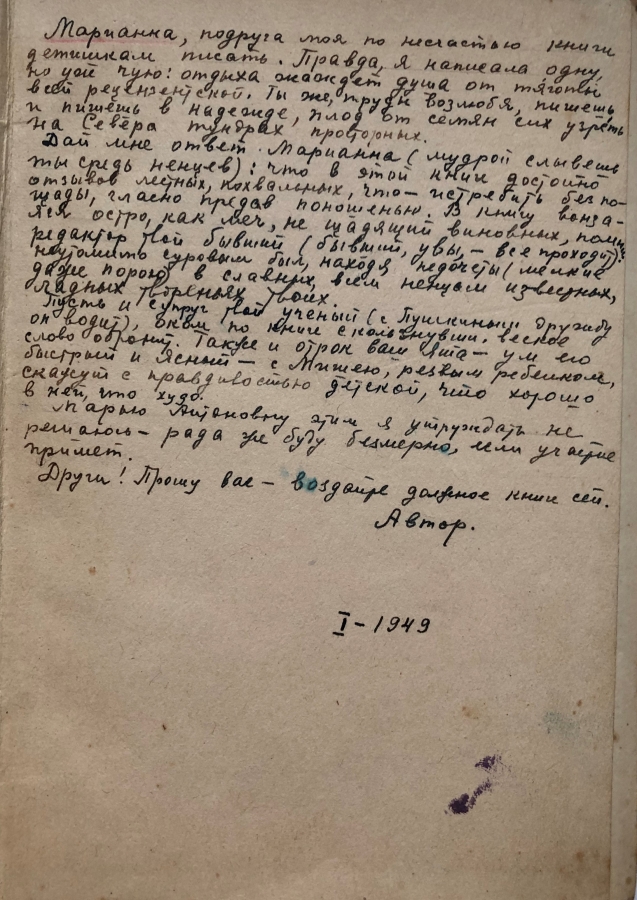 Марианна, подруга моя по несчастью книги
детишкам писать. Правда, я написала одну,
но уой чую: отдыха жаждет душа от тяготы
всей рецензентской. Ты же, труды возлюбя, пишешь
и пишешь в надежде, плод от семян сих узреть
на Севера тундрах просторных.
Дай мне ответ Марианна (мудрой слывешь
ты средь ненцев): что в этой книге достойно
отзывов лестных, похвальных, что – истребить без по-
щады, гласно предав поношенью. В книгу вонза-
яся остро, как меч, не щадящий виновных,
редактор твой бывший (бывший, увы, – все проходит)
неутомимо суровым был, находя недочеты (мелкие
даже порою) в славных, всем ненцам известных,
ладных твореньях твоих.
Пусть и супруг твой ученый (с Пушкиным дружбу
он водит), оком по книге скользнувши, веское
слово обронит. Также и отрок ваш – ум его
быстрый и ясный – с Мишею, резвым ребенком,
скажут с правдивостью детской, что хорошо
в ней, что худо.
Марью Антоновну этим я утруждать не
решаюсь – рада же буду безмерно, если участие
примет.
Други! Прошу вас – воздайте должное книге сей.
Автор.
I – 1949